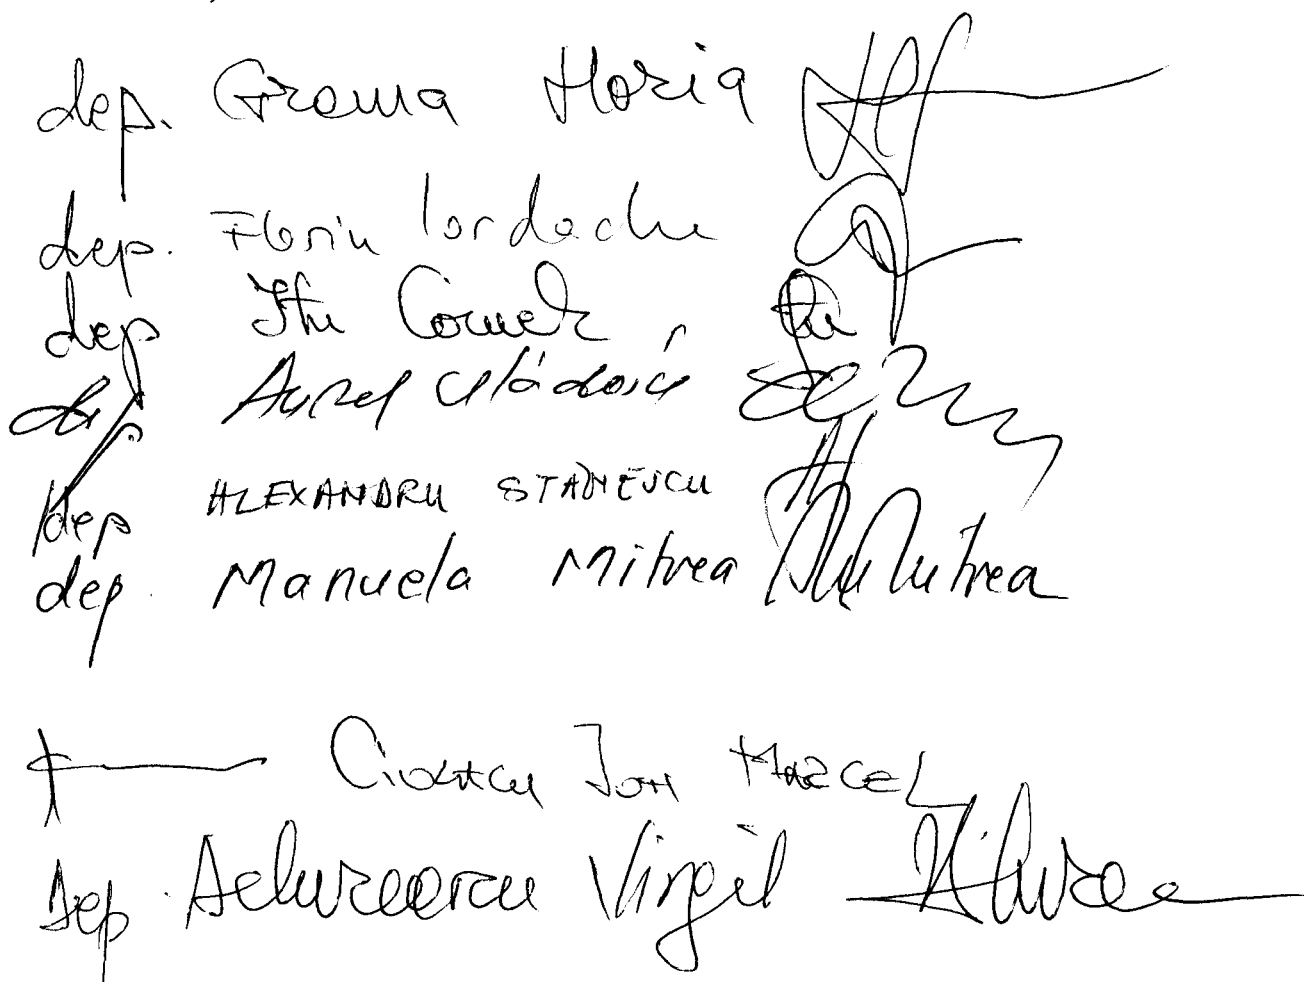 dep. Grama Horia
dep. Florin Iordache
dep Itu Cornel
dep Aurel Vlădoiu
dep ALEXANDRU STĂNESCU
dep. Manuela Mitrea Mitrea
Ciolacu Ion Marcel
Dep. Achureoaru Virgil